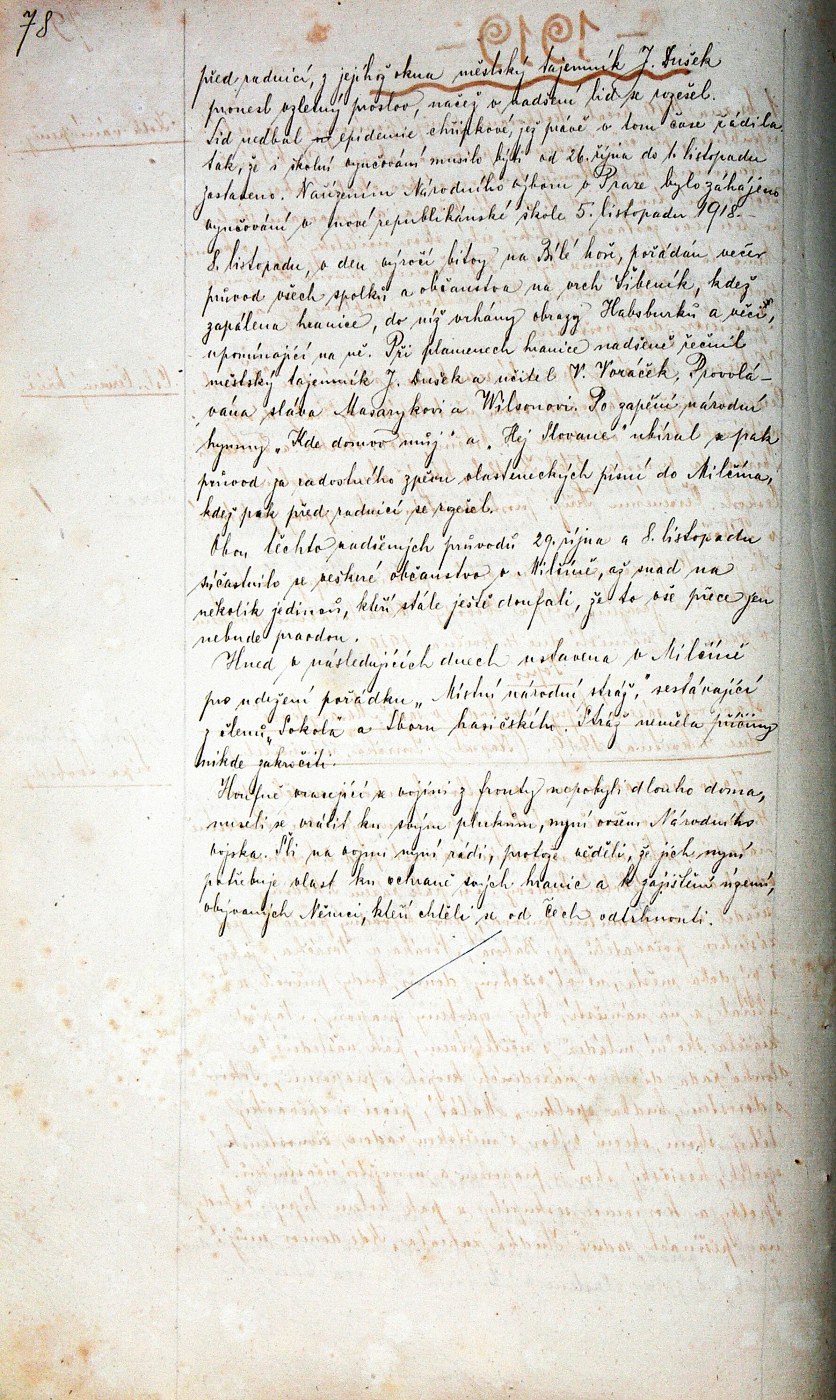 78
před radnicí, z jejíhož okna městský tajemník J. Dušek
pronesl vzletný proslov, načež v nadšení lid se rozešel.
Lid nedbal epidemie chřipkové, jež právě v tom čase řádila
tak, že i školní vyučování musilo býti od 26. října do 1. listopadu
zastaveno. Nařízením Národního výboru v Praze bylo zahájeno
vyučování v nové republikánské škole 5. listopadu 1918.-
8. listopadu, v den výročí bitvy na Bílé hoře, pořádán večer
průvod všech spolků a občanstva na vrch Šibeník, kdež
zapálena hranice, do níž vrhány obrazy Habsburků a věci,
upomínající na ně. Při plamenech hranice nadšeně řečnil
městský tajemník J. Dušek a učitel V. Voráček. Provolá-
vána sláva Masarykovi a Wilsonovi. Po zapění národní
hymny „Kde domov můj" a „Hej Slované" ubíral se pak
průvod za radostného zpěvu vlasteneckých písní do Milčína,
kdež pak před radnicí se rozešel.
Obou těchto nadšených průvodů 29. října a 8. listopadu
súčastnilo se veškeré občanstvo v Milčíně, až snad na
několik jedinců, kteří stále ještě doufali, že to vše přece jen
nebude pravdou.
Hned v následujících dnech ustavena v Milčíně
pro udržení pořádku „Místní národní stráž," sestávající
z členů „Sokola" a Sboru hasičského. Stráž neměla příčiny
nikde zakročiti.
Houfně vracející se vojíni z fronty nepobyli dlouho doma,
museli se vrátit ku svým plukům, nyní ovšem Národního
vojska. Šli na vojnu nyní rádi, protože věděli, že jich nyní
potřebuje vlast ku ochraně svých hranic a k zajištění území,
obývaných Němci, kteří chtěli se od Čech odtrhnouti.